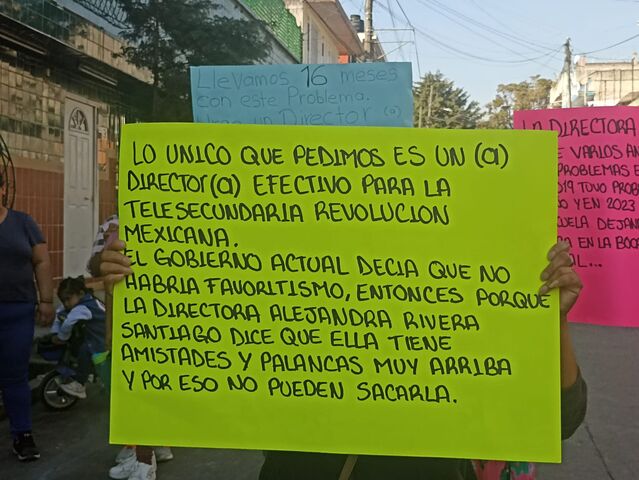 Llevamos 16 meses
con este Problema.
Director (a)
LO UNICO QUE PEDIMOS ES UN (a)
DIRECTOR(a) EFECTIVO PARA LA
TELESECUNDARIA REVOLUCION
MEXICANA.
EL GOBIERNO ACTUAL DECIA QUE NO
HABRIA FAVORITISMO, ENTONCES PORQUE
LA DIRECTORA ALEJANDRA RIVERA
SANTIAGO DICE QUE ELLA TIENE
AMISTADES Y PALANCAS MUY ARRIBA
Y POR ESO NO PUEDEN SACARLA.
LA DIRECTORA
E VARIOS AN
PROBLEMAS E
019 TUVO PROB
O Y EN 2023
UELA DEJAN
EN LA BOC
AL...